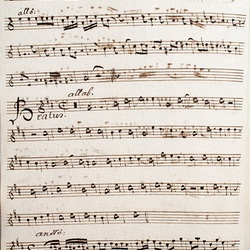 allo:
allab.
Beatus.
andte